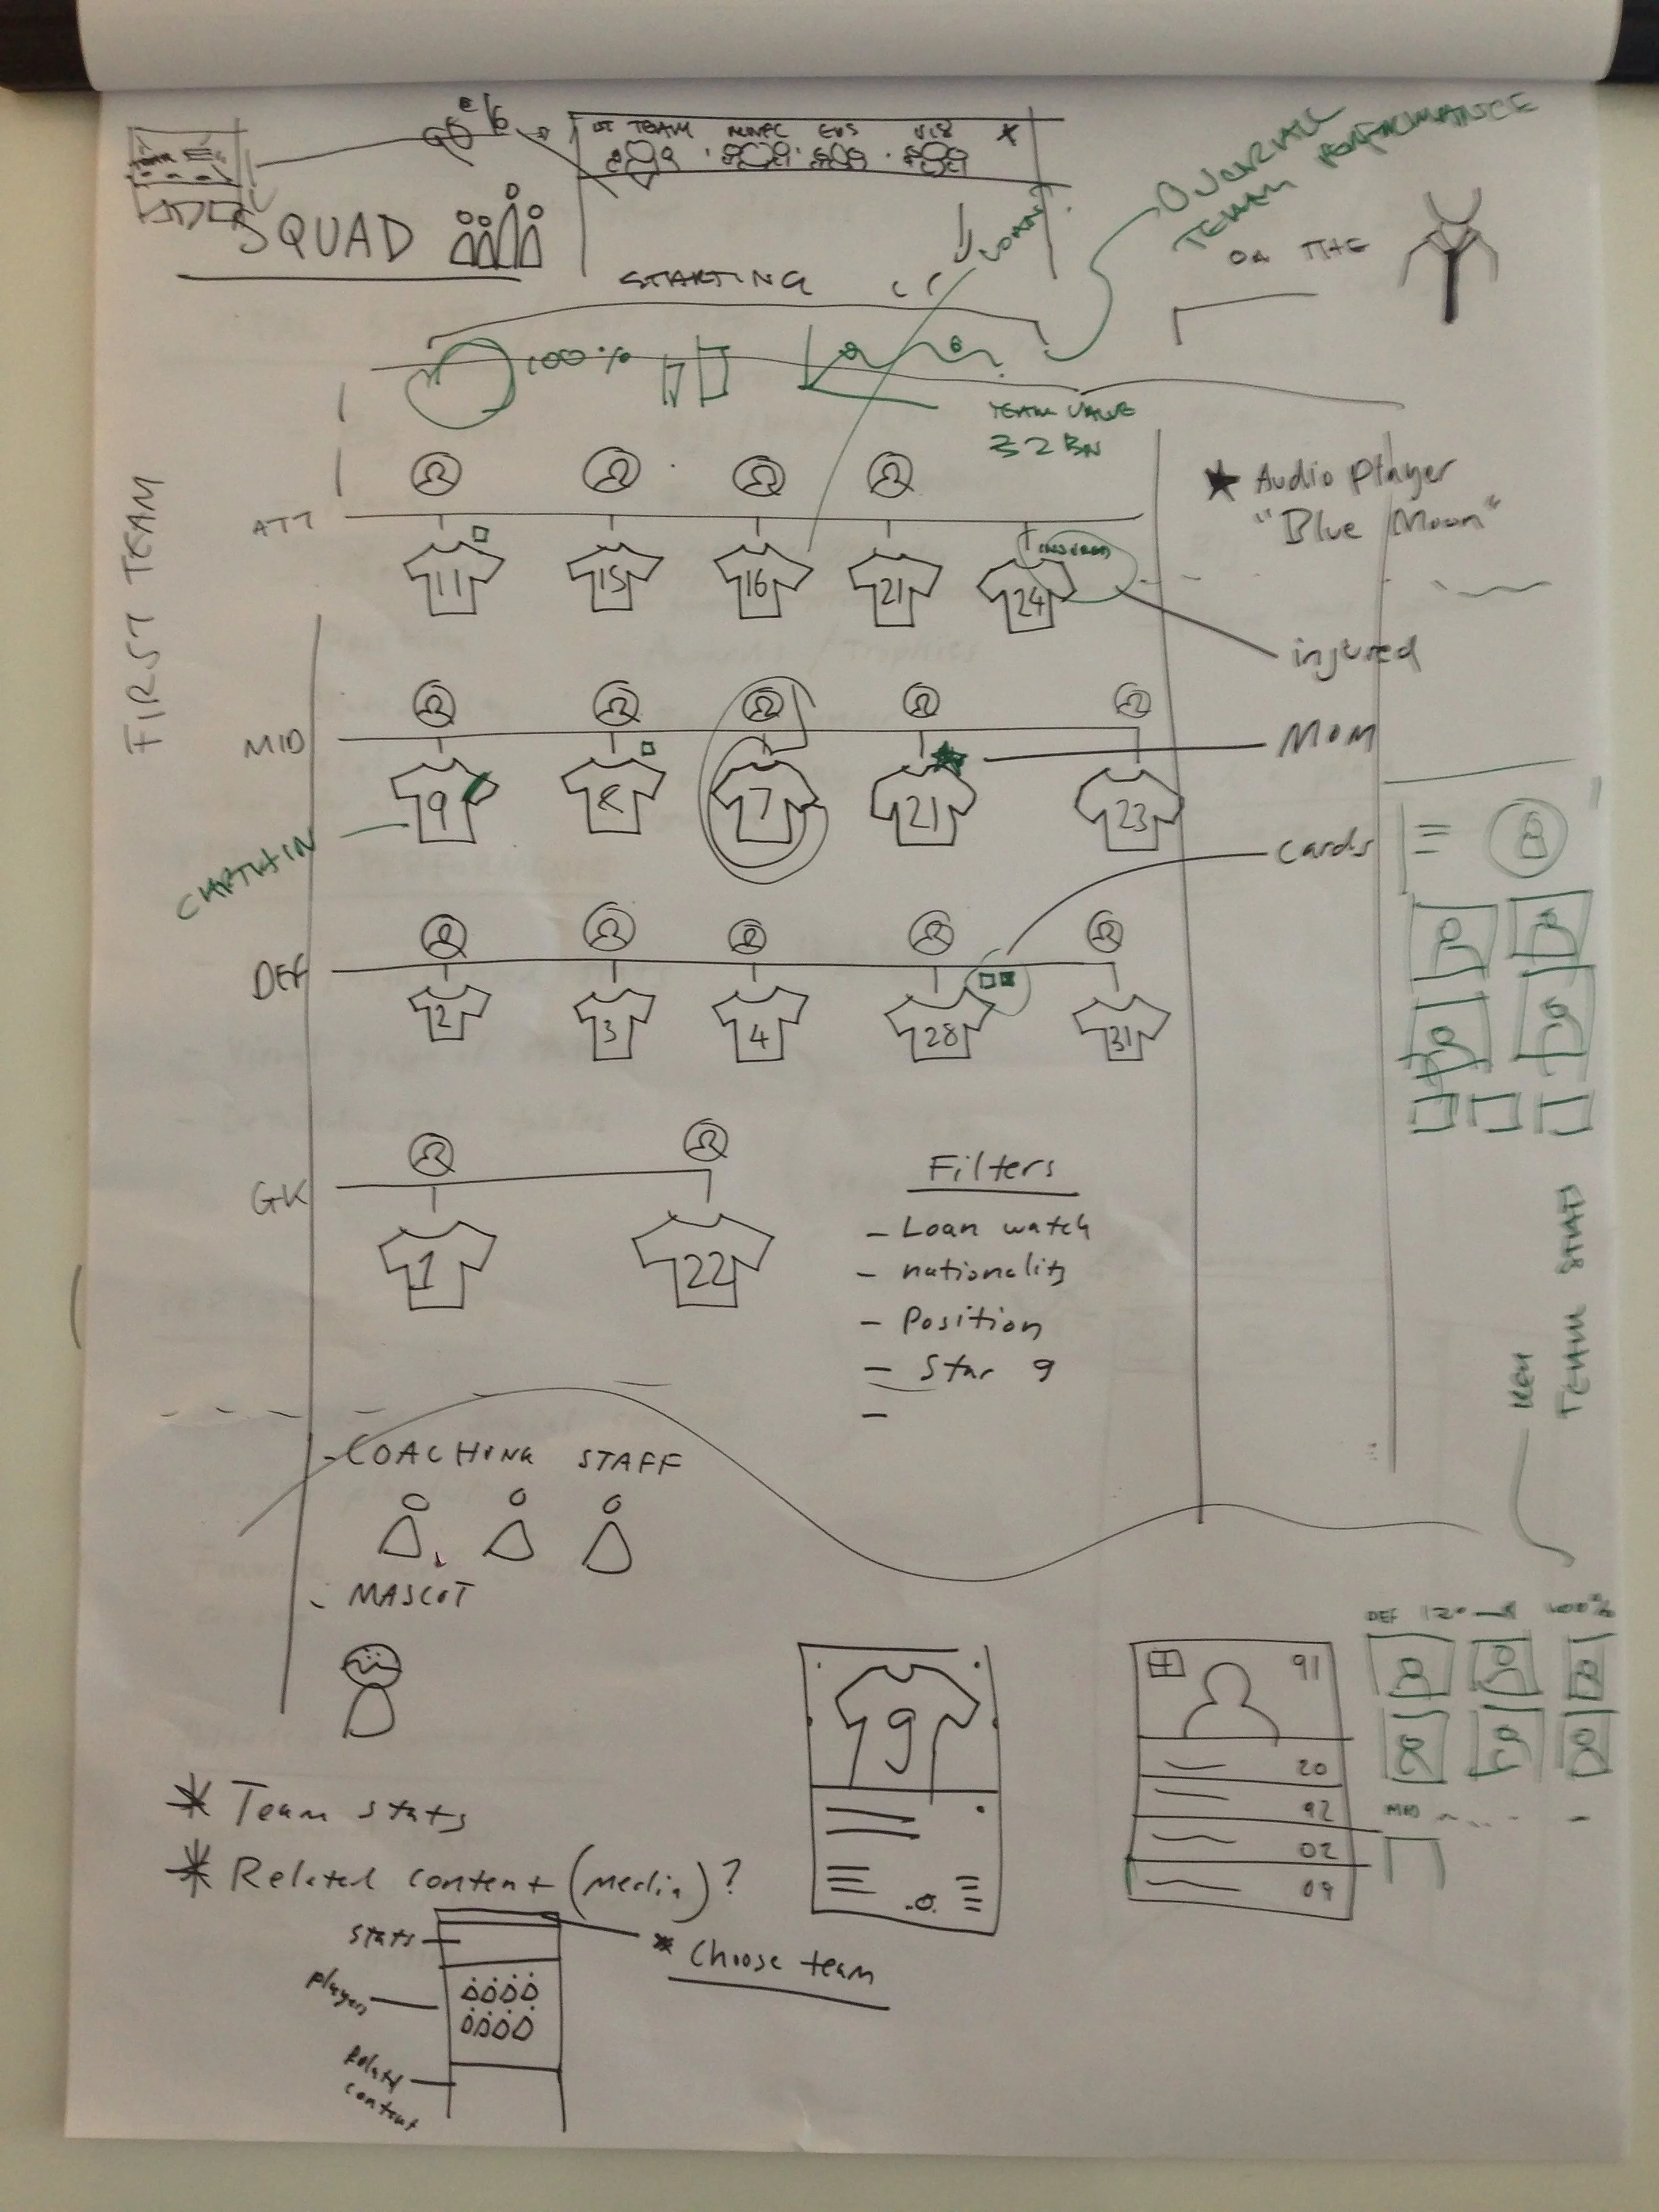 1ST TEAM
EDS
U18
SQUAD
OVERALL
TEAM PERFORMANCE
LOAN
ON THE
STARTING
100%
TEAM VALUE
£2 BN
FIRST TEAM
★ Audio player
"Blue Moon"
ATT
11
15
16
21
24
injured
MID
9
8
7
21
23
MOM
CAPTAIN
cards
DEF
2
3
4
28
31
GK
1
22
Filters
- Loan watch
- nationality
- Position
- Star 9
-
TEAM
- COACHING STAFF
- MASCOT
DEF
100%
9
91
20
92
02
09
MID
* Team stats
* Related content (Media)?
stats
players
Related
content
* Choose team